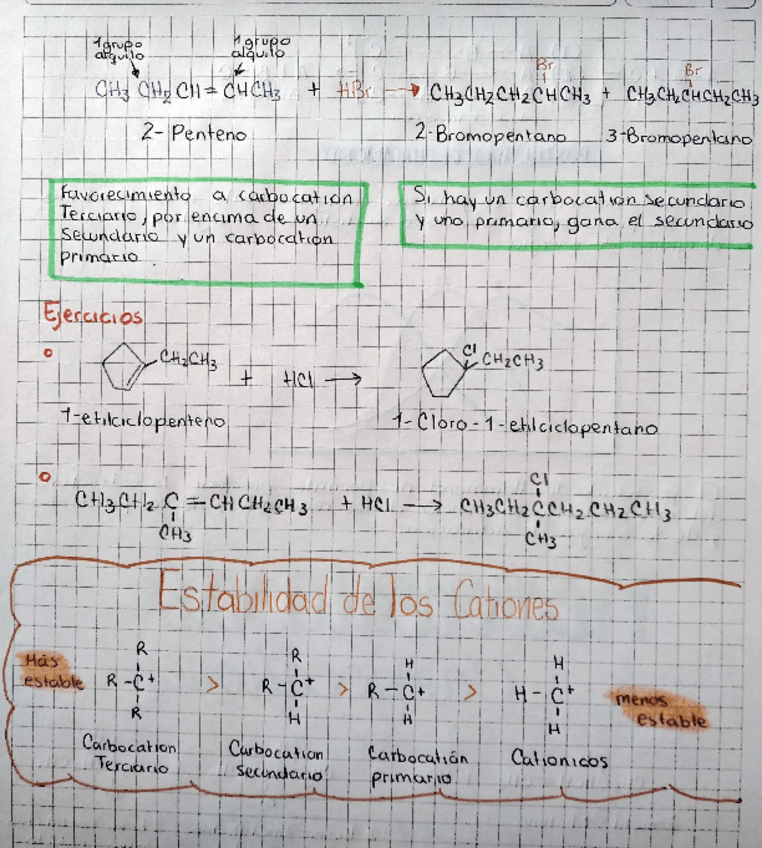 1 grupo alquilo
1 grupo alquilo
CH3 CH2 CH = CHCH3 + HBr → CH3CH2CH2CHCH3 + CH3CH2CHCH2CH3
Br
Br
2- Penteno
2-Bromopentano
3-Bromopentano
Favorecimiento a carbocatión
Terciario, por encima de un
secundario y un carbocation
primario.
Si hay un carbocation secundario
y uno primario, gana el secundario
Ejercicios
CH2CH3 + HCl →
Cl
CH2CH3
1-etilciclopenteno
1-Cloro-1-etilciclopentano
CH3CH2 C = CHCH2CH3 + HCl → CH3CH2CCH2CH2CH3
CH3
Cl
CH3
Estabilidad de los Cationes
Más
estable
R
R-C+
R
>
R
R-C+
H
>
H
R-C+
H
>
H
H-C+
H
menos
estable
Carbocation
Terciario
Carbocation
secundario
Carbocatión
primario
Cationicos